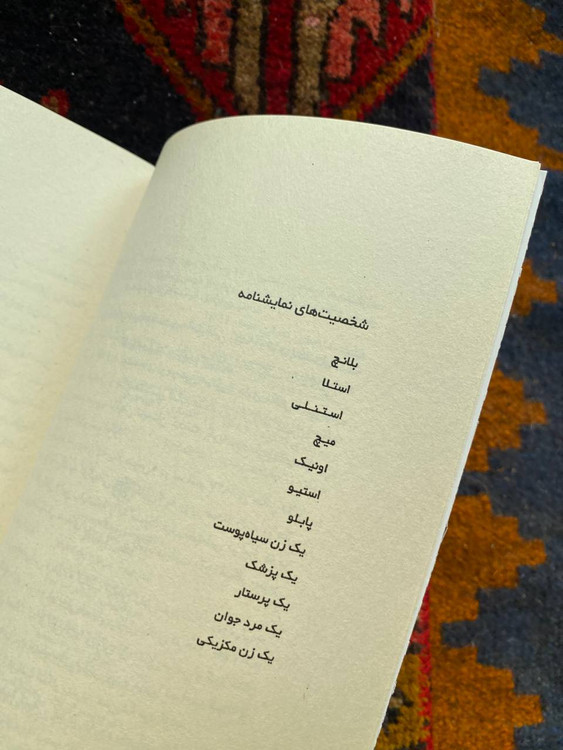 شخصیت‌های نمایشنامه
بلانچ
استلا
استنلی
میچ
اونیک
استیو
پابلو
یک زن سیاه‌پوست
یک پزشک
یک پرستار
یک مرد جوان
یک زن مکزیکی